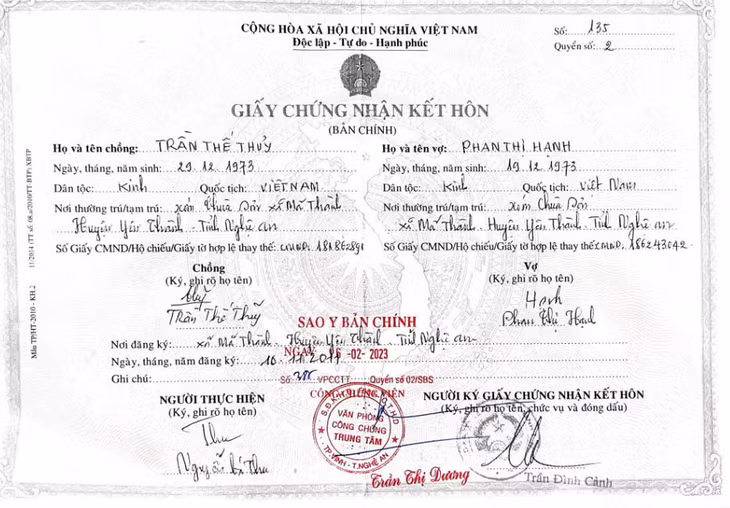 CỘNG HÒA XÃ HỘI CHỦ NGHĨA VIỆT NAM
Độc lập - Tự do - Hạnh phúc
Số: 135
Quyển số: 2
GIẤY CHỨNG NHẬN KẾT HÔN
(BẢN CHÍNH)
Họ và tên chồng: TRẦN THẾ THỦY
Họ và tên vợ: PHAN THỊ HẠNH
Ngày, tháng, năm sinh: 29.12.1973
Ngày, tháng, năm sinh: 19.12.1973
Dân tộc: Kinh Quốc tịch: VIỆT NAM
Dân tộc: Kinh Quốc tịch: Việt Nam
Nơi thường trú/tạm trú: xóm Chùa xã Mã Thành
Huyện Yên Thành - Tỉnh Nghệ an
Nơi thường trú/tạm trú: Xóm Chùa
xã Mã Thành, Huyện Yên Thành - Tỉnh Nghệ an
Số Giấy CMND/Hộ chiếu/Giấy tờ hợp lệ thay thế: CMND.
Số Giấy CMND/Hộ chiếu/Giấy tờ hợp lệ thay thế: CMND. 186243042
Chồng
(Ký, ghi rõ họ tên)
Thuỷ
Trần Thế Thuỷ
Vợ
(Ký, ghi rõ họ tên)
Hạnh
Phan Thị Hạnh
SAO Y BẢN CHÍNH
Nơi đăng ký: xã Mã Thành - Huyện Yên Thành - Tỉnh Nghệ an
NGÀY -02- 2023
Ngày, tháng, năm đăng ký:
Ghi chú:
Số VPCCTT Quyển số 02/SBS
CÔNG CHỨNG VIÊN
NGƯỜI THỰC HIỆN
(Ký, ghi rõ họ tên)
NGƯỜI KÝ GIẤY CHỨNG NHẬN KẾT HÔN
(Ký, ghi rõ họ tên, chức vụ và đóng dấu)
VĂN PHÒNG
CÔNG CHỨNG
TRUNG TÂM
TP.VINH - T.NGHỆ AN
Trần Thị Dương
Trần Đình Cảnh
Mẫu TP/HT-2010 - KH.2